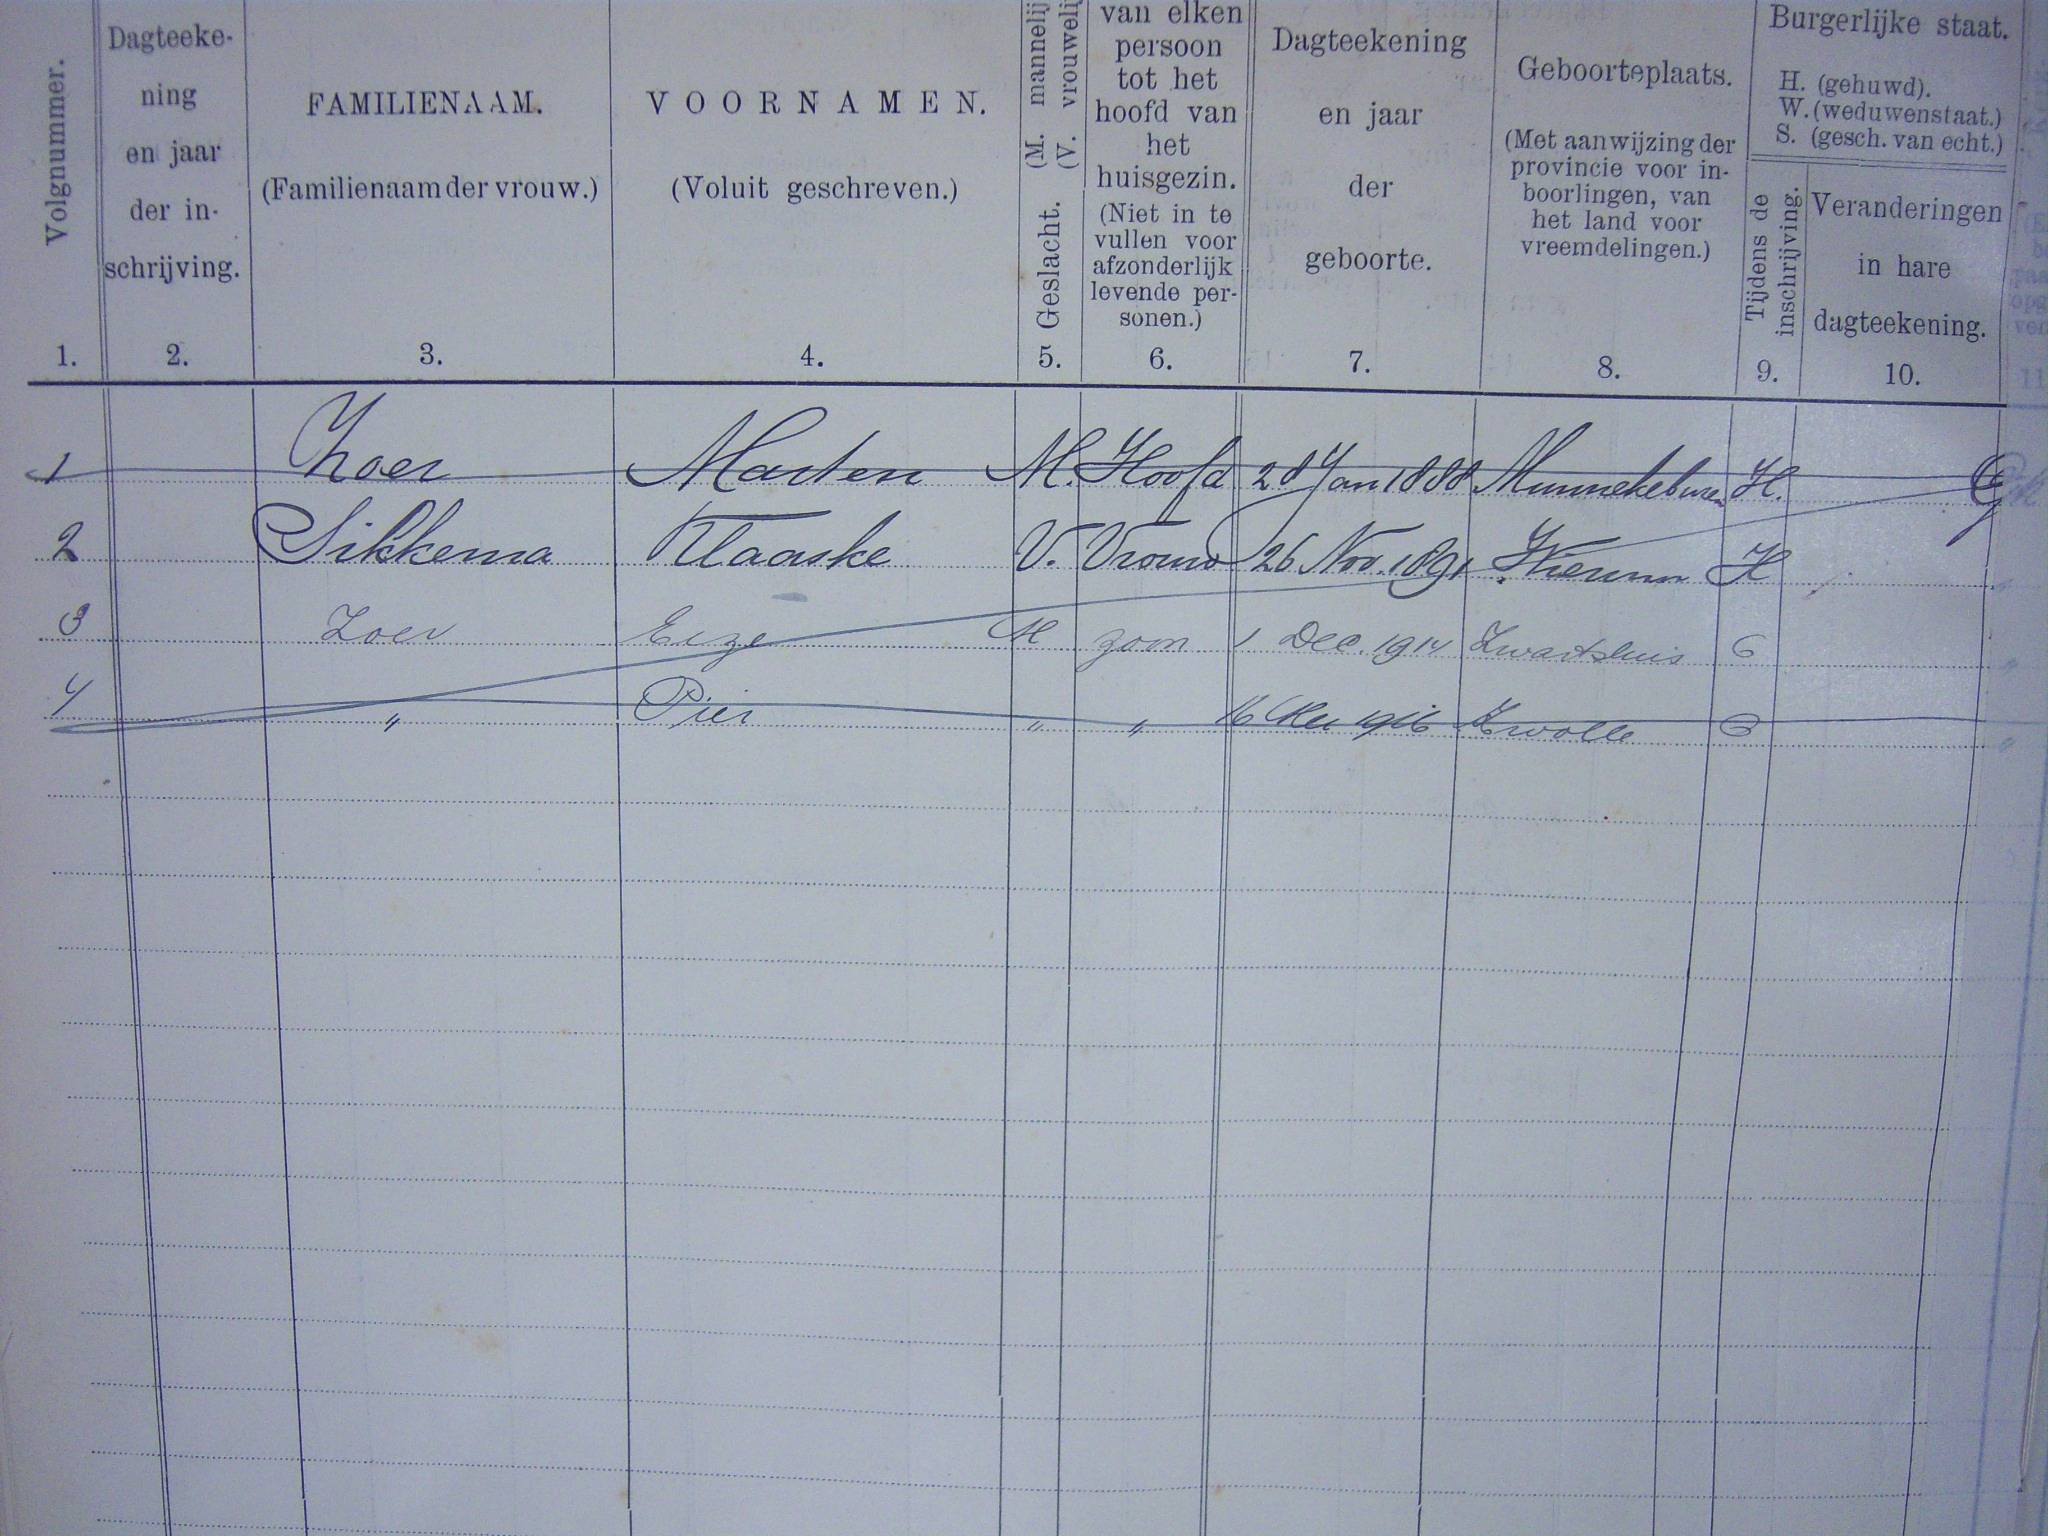 Volgnummer.
1.
Dagteeke-
ning
en jaar
der in-
schrijving.
2.
FAMILIENAAM.
(Familienaam der vrouw.)
3.
VOORNAMEN.
(Voluit geschreven.)
4.
Geslacht.
(M. mannelij
(V. vrouwelij
5.
van elken
persoon
tot het
hoofd van
het
huisgezin.
(Niet in te
vullen voor
afzonderlijk
levende per-
sonen.)
6.
Dagteekening
en jaar
der
geboorte.
7.
Geboorteplaats.
(Met aanwijzing der
provincie voor in-
boorlingen, van
het land voor
vreemdelingen.)
8.
Burgerlijke staat.
H. (gehuwd).
W. (weduwenstaat.)
S. (gesch. van echt.)
Tijdens de
inschrijving.
9.
Veranderingen
in hare
dagteekening.
10.
1 Zoer Marten M. Hoofd 28 Jan 1888 Munnekeburen H.
2 Sikkema Klaaske V. Vrouw 26 Nov. 1891 H
3 Zoer Eize M zoon 1 Dec. 1914 Zwartsluis
4 „ Pier „ „ 16 1916 Zwolle